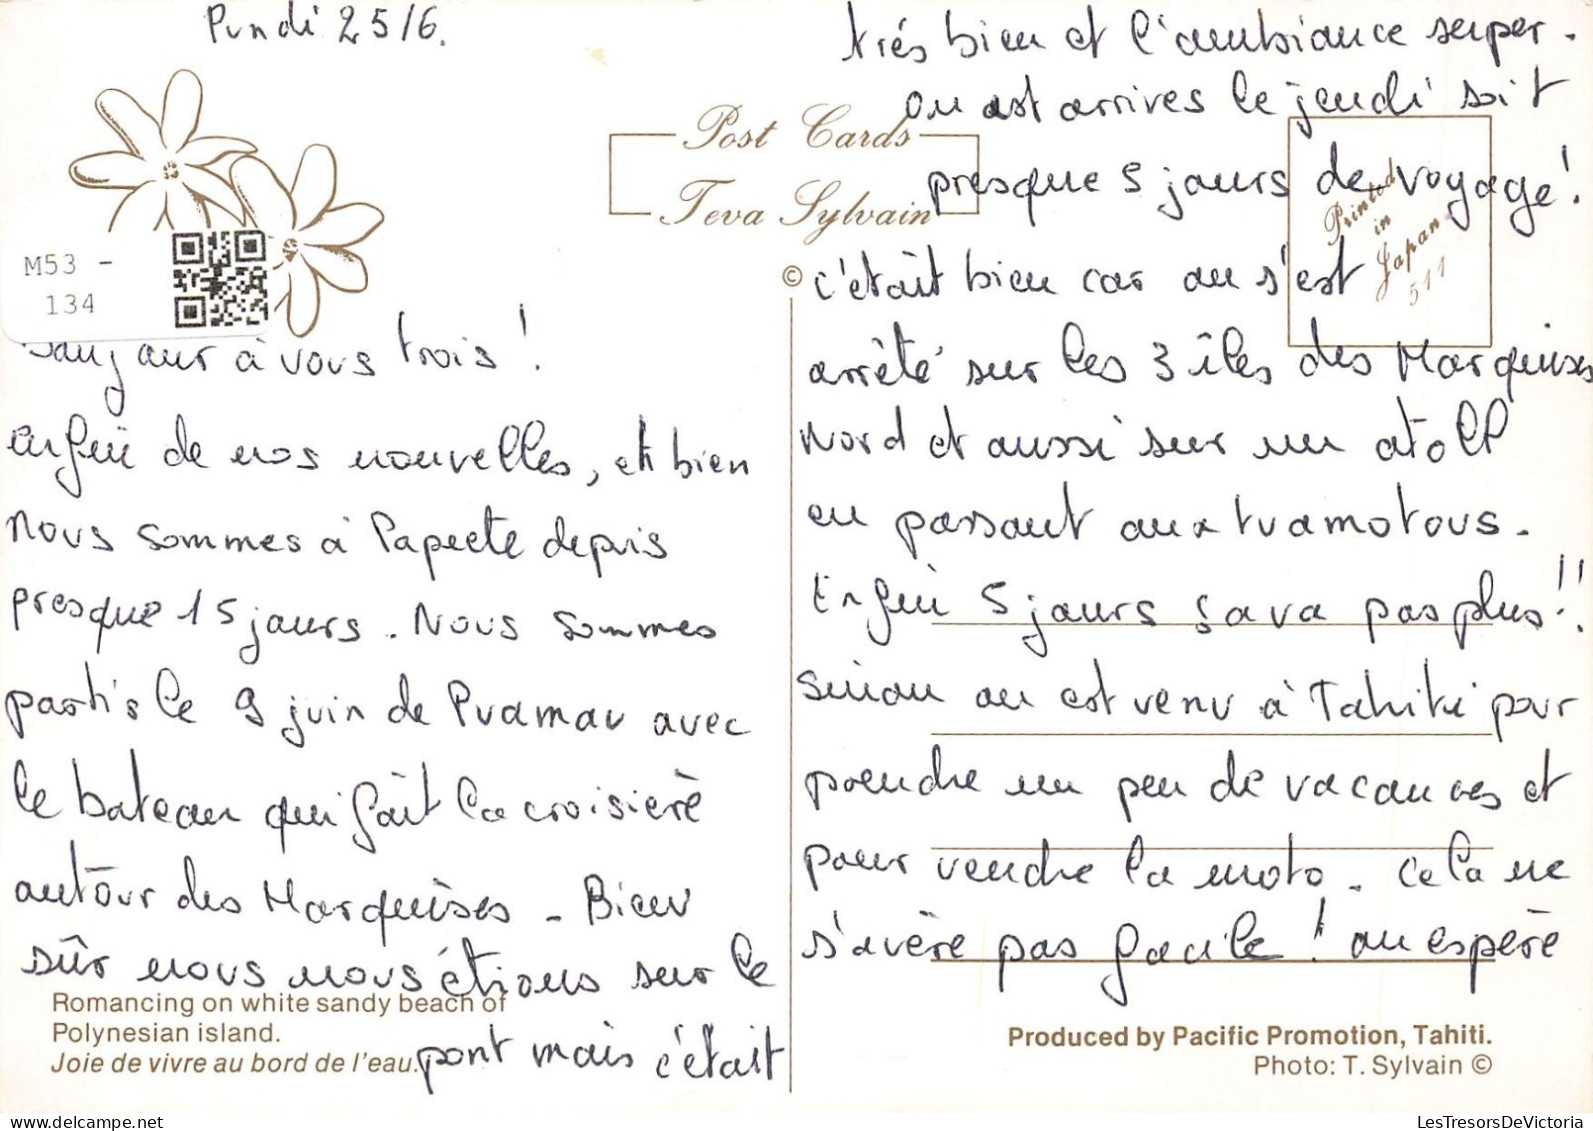 Pundi 25/6.
M53 -
134
Bonjour à vous trois !
enfin de nos nouvelles, eh bien
nous sommes à Papeete depuis
presque 15 jours. Nous sommes
partis le 9 juin de Puamau avec
le bateau qui fait la croisière
autour des Marquises - Bien
sûr nous nous étions sur le
pont mais c'était
Romancing on white sandy beach of
Polynesian island.
Joie de vivre au bord de l'eau.
Post Cards
Teva Sylvain
©
Printed
in
Japan
511
très bien et l'ambiance super.
on est arrivés le jeudi soit
presque 5 jours de voyage !
c'était bien car on s'est
arrêté sur les 3 îles des Marquises
Nord et aussi sur un atoll
en passant aux tuamotous.
Enfin 5 jours ça va pas plus !!
sinon on est venu à Tahiti pour
prendre un peu de vacances et
pour vendre la moto. Cela ne
s'avère pas facile ! on espère
Produced by Pacific Promotion, Tahiti.
Photo: T. Sylvain ©
LesTresorsDeVictoria